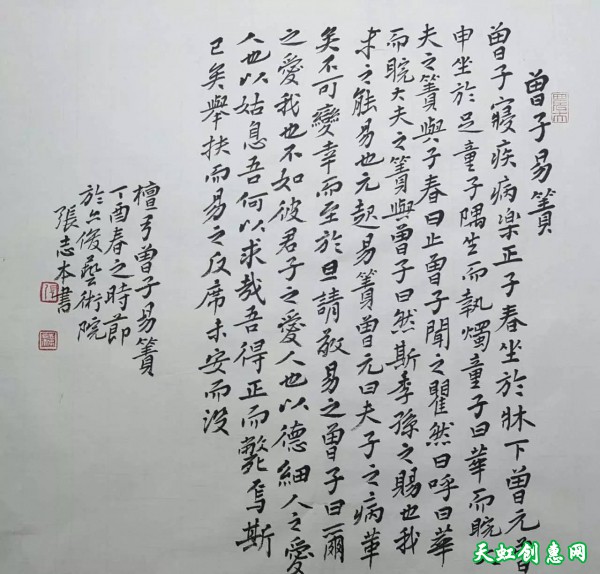 曾子易簀
曾子寢疾病楽正子春坐於牀下曾元曾
申坐於足童子隅坐而執燭童子曰華而睆大
夫之簀與子春曰止曾子聞之瞿然曰呼曰華
而睆大夫之簀與曾子曰然斯季孫之賜也我
未之能易也元起易簀曾元曰夫子之病革
矣不可變幸而至於旦請敬易之曾子曰爾
之愛我也不如彼君子之愛人也以德細人之愛
人也以姑息吾何以求哉吾得正而斃焉斯
已矣舉扶而易之反席未安而没
檀弓曾子易簀
丁酉春之時節
於俊藝術院
張志本書
天虹创惠网